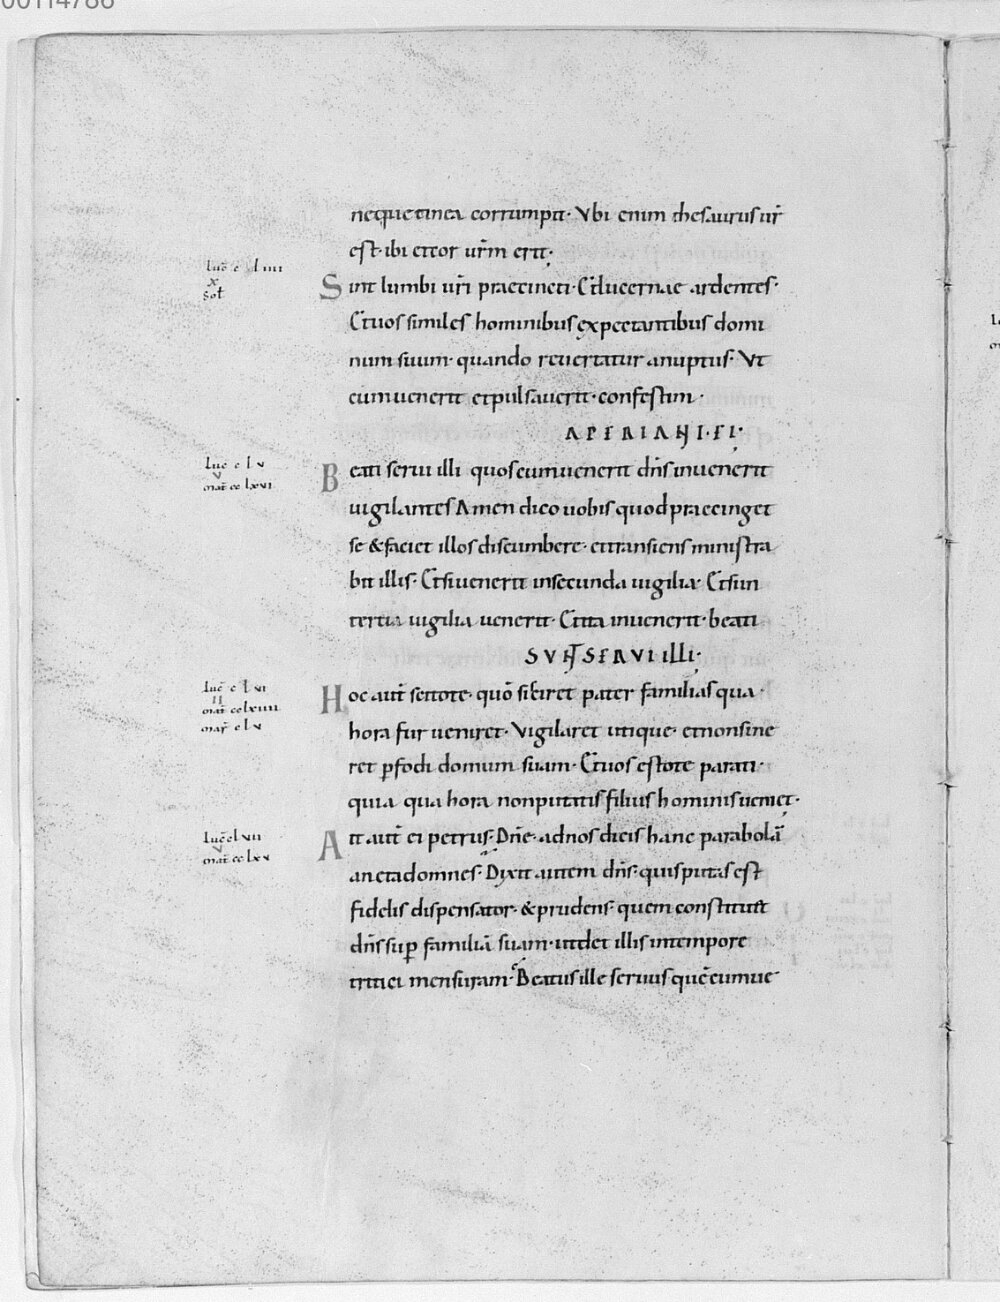 00114786
neque tinea corrumpit· Vbi enim thesaurus ur̄
est· ibi et cor ur̄m erit·
luc̄ c lxiiii
x
sol̄
Sint lumbi ur̄i praecincti· Et lucernae ardentes·
Et uos similes hominibus expectantibus domi
num suum· quando reuertatur anuptus· Vt
cum uenerit et pulsauerit· confestim·
APERIANT· EI·
luc̄ c l v
v
mat̄ cc lxvi
Beati serui illi quos cum uenerit dn̄s inuenerit
uigilantes Amen dico uobis quod praecinget
se & faciet illos discumbere· et transiens ministra
bit illis· Et si uenerit in secunda uigilia· Et si in
tertia uigilia uenerit· Et ita inuenerit· beati
SUNT SERVI illi·
luc̄ c l vi
II
mat̄ cc lxiiii
mar̄ c l v
Hoc aut̄ scitote· quō si sciret pater familias qua·
hora fur ueniret· Vigilaret utique· et non sine
ret ꝑfodi domum suam· Et uos estote parati·
quia qua hora non putatis filius hominis ueniet·
luc̄ c l vii
v
mat̄ cc lxv
Ait aut̄ ei petrus· Dn̄e· ad nos dicis hanc parabolā
an et ad omnes· Dixit autem dn̄s· quis putas est
fidelis dispensator· & prudens· quem constituit
dn̄s suꝑ familiā suam· ut det illis in tempore
tritici mensuram· Beatus ille seruus quē cum ue